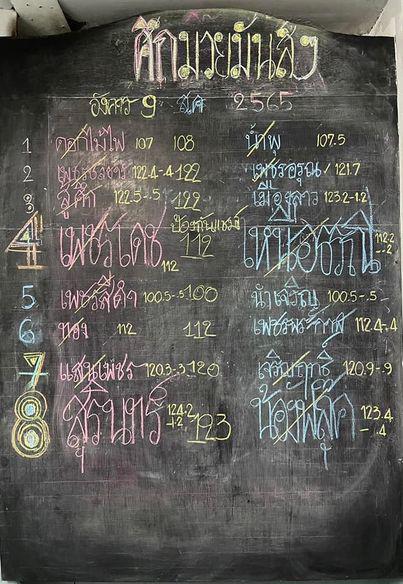 ศึกมวยมันส์ๆ
อังคาร 9 ส.ค 2565
1 ดอกไม้ไฟ 107 108 น้ำพุ 107.5
2 เพชร 122.4-.4 122 เพชรอรุณ 121.7
3 สู้ศึก 122.5-.5 122 เมืองลาว 123.2-1.2
ป้องกันแชมป์
4 เพชรเดช 112 112 เหนือธรณี 112.2-.2
5 เพชรสีดำ 100.5-.5 100 นำเจริญ 100.5-.5
6 ทอง 112 112 112.4-.4
7 แสนเพชร 120.3-.3 120 เจริญฤทธิ์ 120.9-.9
8 สุรินทร์ 124.2-1.2 123 น้องฟลุ๊ค 123.4-.4